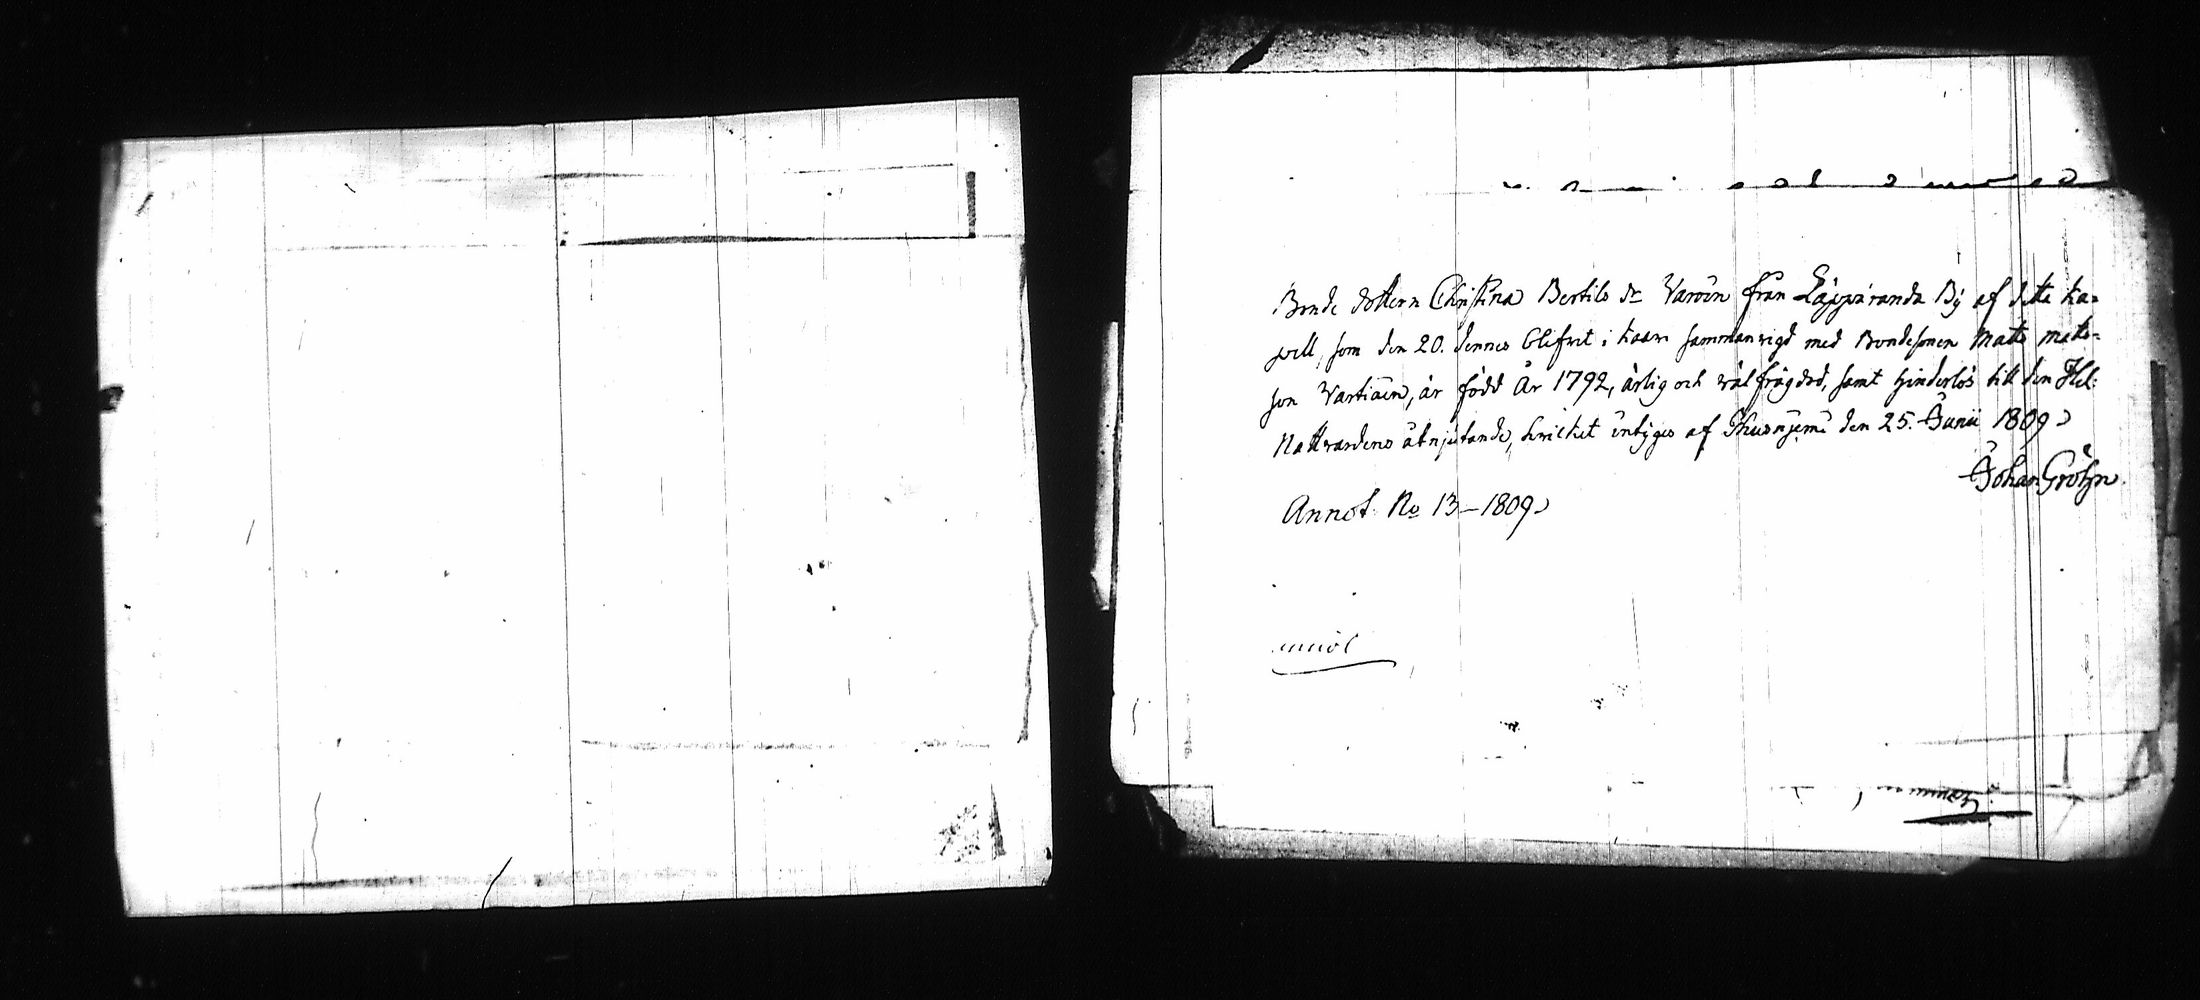 Bonde dottern Christina Bertils dr Varoin från Läppäranda By af detta ka-
pell, som den 20. dennes blifvit i kaare sammanvigd med Bondesonen Matts Mats-
son Vartiain, är född År 1792, ärlig och väl frägdad, samt hinderlös till den Hel:
Nattvardens åtnjutande, hvilket intygas af den 25. Junii 1809
Johan Gröhn
Annot: No 13 – 1809